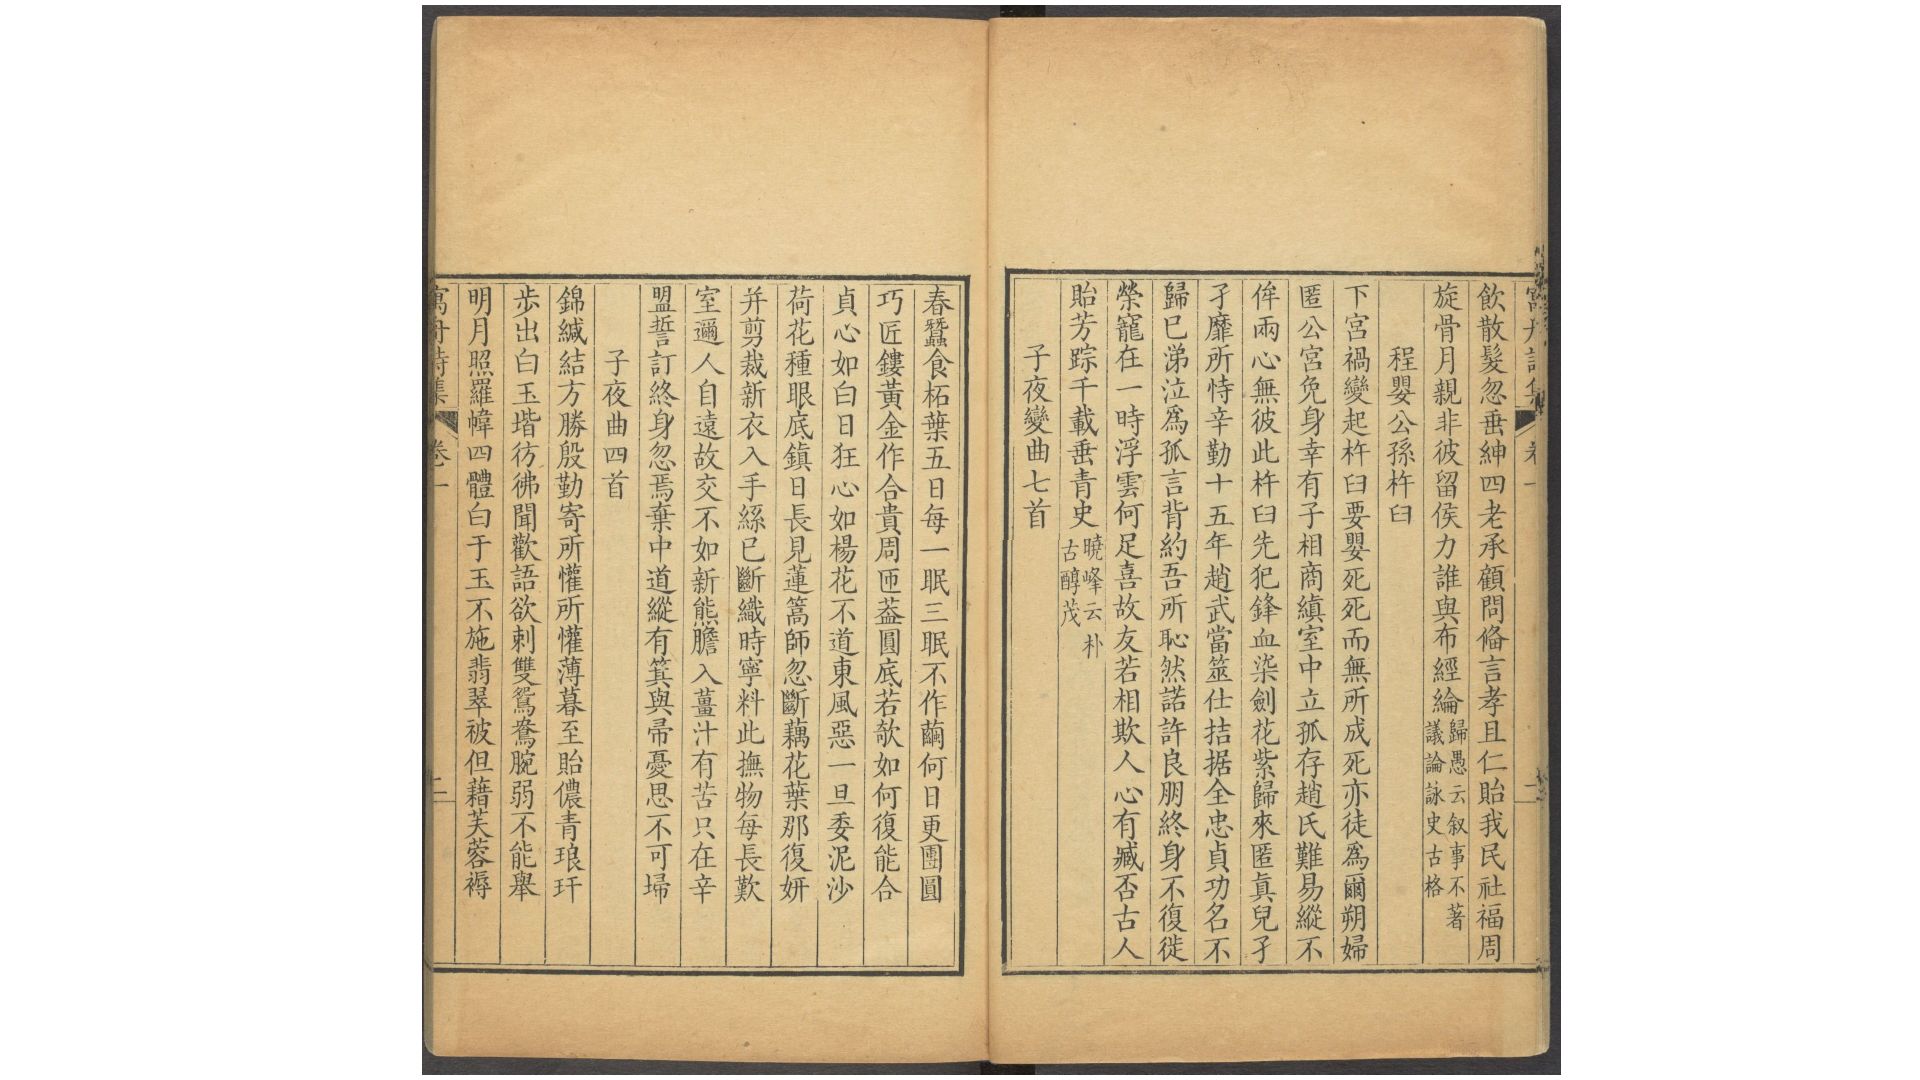 寓舟詩集 卷一 一
飲散髮忽垂紳四老承顧問脩言孝且仁貽我民社福周
旋骨月親非彼留侯力誰與布經綸歸愚云叙事不著
議論詠史古格
程嬰公孫杵臼
下宮禍變起杵臼要嬰死死而無所成死亦徒爲爾朔婦
匿公宮免身幸有子相商縝室中立孤存趙氏難易縱不
侔兩心無彼此杵臼先犯鋒血染劍花紫歸來匿真兒孑
孑靡所恃辛勤十五年趙武當筮仕拮据全忠貞功名不
歸已涕泣爲孤言背約吾所恥然諾許良朋終身不復徙
榮寵在一時浮雲何足喜故友若相欺人心有臧否古人
貽芳踪千載垂青史曉峰云朴
古醇茂
子夜變曲七首
春蠶食柘葉五日每一眠三眠不作繭何日更團圓
巧匠鏤黃金作合貴周匝葢圓底若欹如何復能合
貞心如白日狂心如楊花不道東風惡一旦委泥沙
荷花種眼底鎮日長見蓮篙師忽斷藕花葉那復妍
并剪裁新衣入手絲已斷織時寧料此撫物每長歎
室邇人自遠故交不如新熊膽入薑汁有苦只在辛
盟誓訂終身忽焉棄中道縱有箕與帚憂思不可埽
子夜曲四首
錦緘結方勝殷勤寄所懽所懽薄暮至貽儂青琅玕
步出白玉堦彷彿聞歡語欲刺雙鴛鴦腕弱不能舉
明月照羅幃四體白于玉不施翡翠被但藉芙蓉褥
寓舟詩集 卷一 二